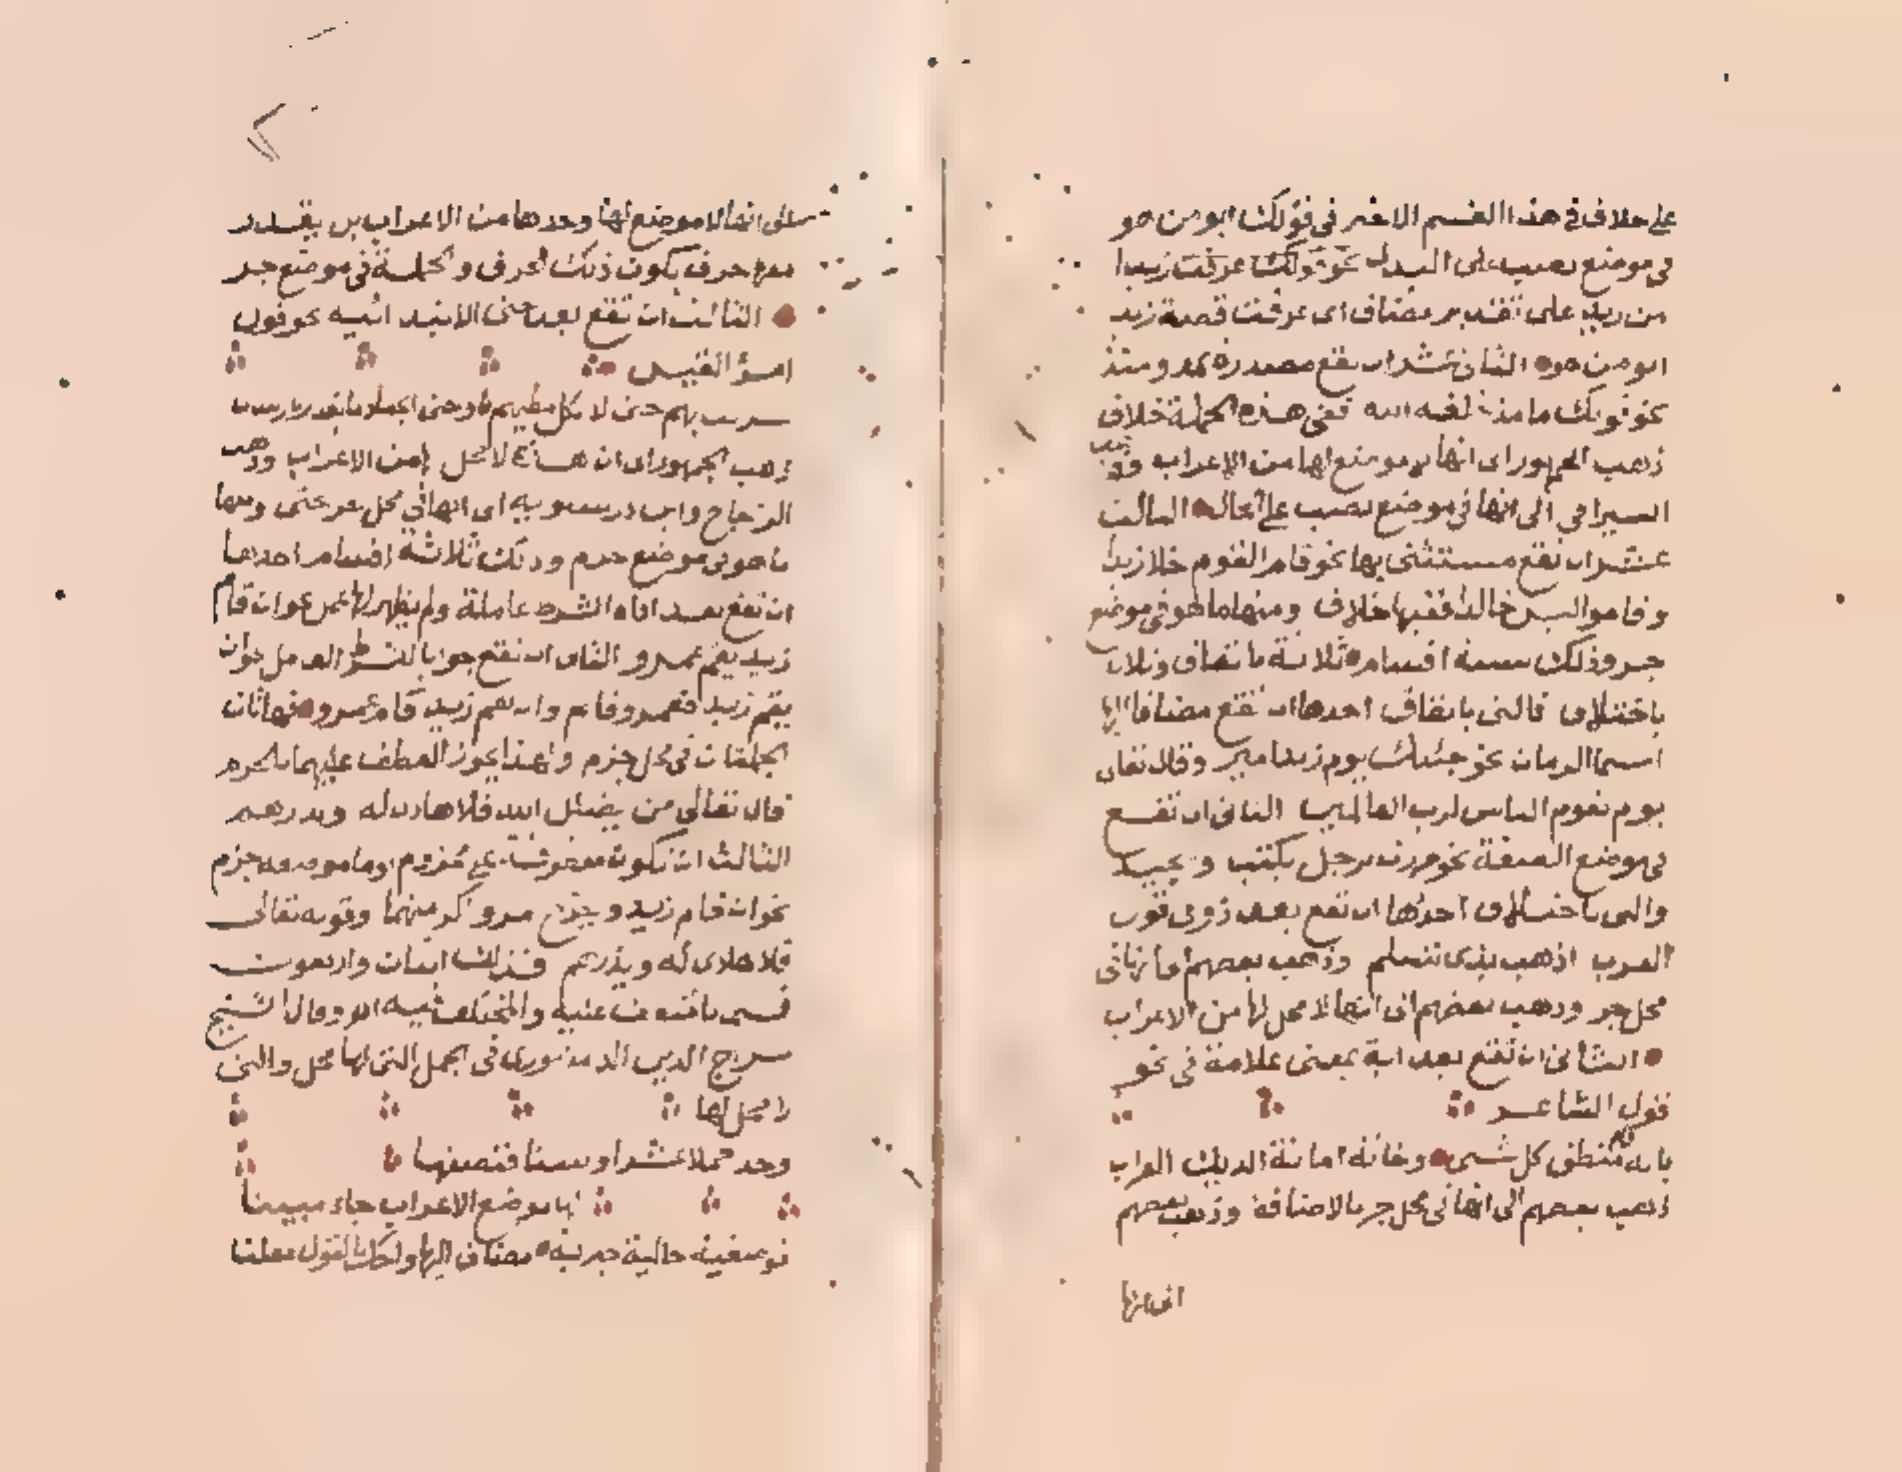 على خلاف في هذا القسم الاخير في قولك ابو من هو
في موضع نصب على البدل نحو قولك عرفت زيدا
من زيد على تقدير مضاف اى عرفت قصة زيد
ابو من هو الثانى عشر ان تقع مصدرة بمذ ومنذ
نحو قولك ما لقيه الله ففى هذه الجملة خلاف
ذهب الجمهور الى انها لا موضع لها من الاعراب وذهب
السيرافي الى انها في موضع نصب على الحال الثالث
عشر ان تقع مستثنى بها نحو قام القوم خلا زيدا
وقاموا ليس خالدا ففيها خلاف ومنها ما هو في موضع
جر وذلك ستة اقسام ثلاثة باتفاق وثلاث
باختلاف فالتى باتفاق احدها ان تقع مضافا اليها
اسما الزمان نحو جئتك يوم زيد امير وقال تعالى
يوم يقوم الناس لرب العالمين الثانى ان تقع
في موضع الصفة نحو مررت برجل يكتب ويجيد
والتى باختلاف احدها ان تقع بعد ذوى قول
العرب اذهب بذى تسلم وذهب بعضهم انها في
محل جر وذهب بعضهم الى انها لا محل لها من الاعراب
الثانى ان تقع بعد اية بمعنى علامة في نحو
قول الشاعر
بانه قام ينطق كل شى وخانه امانة الديك الغراب
ذهب بعضهم الى انها في محل جر بالاضافة وذهب بعضهم
الى انها
على انها لا موضع لها وحدها من الاعراب بل يقدر
معها حرف يكون ذلك الحرف والجملة في موضع جر
الثالث ان تقع بعد حتى الابتدائيه نحو قول
امرؤ القيس
سريت بهم حتى تكل مطيهم وحتى الجياد ما يقدن بارسان
ذهب الجمهور الى ان هذه لا محل لها من الاعراب وذهب
الزجاج وابن درستويه الى انها في محل جر بحتى ومنها
ما هو في موضع جزم وذلك ثلاثة اقسام احدها
ان تقع بعد اداة الشرط عاملة ولم يظهر لها عمل نحو ان قام
زيد يقم عمرو الثانى ان تقع جوابا للشرط العامل نحو ان
يقم زيد فعمرو قام وان يقم زيد قام عمرو فهاتان
الجملتان في محل جزم ولهذا يجوز العطف عليهما بالجزم
قال تعالى من يضلل الله فلا هادى له ويذرهم
الثالث ان تكون معطوفة على مجزوم او ما موضعه جزم
نحو ان قام زيد ويخرج عمرو اكرمهما وقوله تعالى
فلا هادى له ويذرهم فذلك اثنان واربعون
قسما بالمتفق عليه والمختلف فيه وقال الشيخ
سراج الدين الدمنهورى في الجمل التى لها محل والتى
لا محل لها
وخذ جملا عشرا وستا فنصفها
لها موضع الاعراب جاء مبينا
فوصفية حالية خبرية مضاف اليها واحك بالقول معلنا